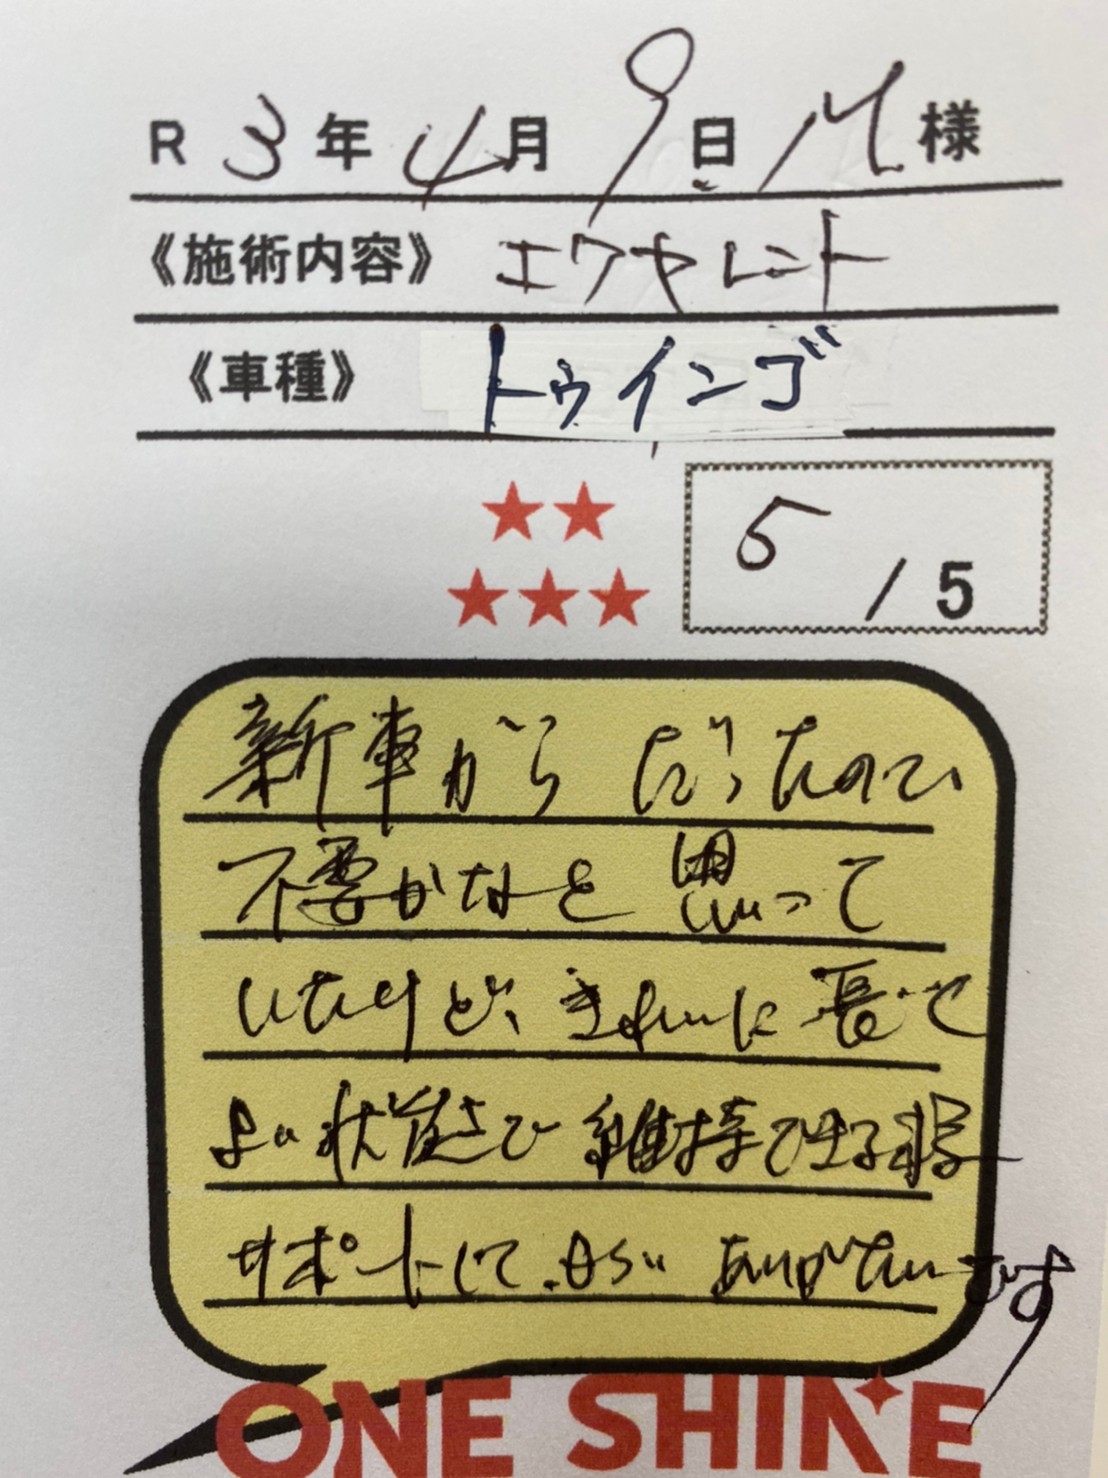 R 3年 4月 9日 M様
《施術内容》 エクセレント
《車種》 トゥインゴ
5 / 5
新車からだったので、
不要かなと思って
いたけど、きれいに長く
よい状態を維持できる様
サポートして もらい ありがたいです
ONE SHINE